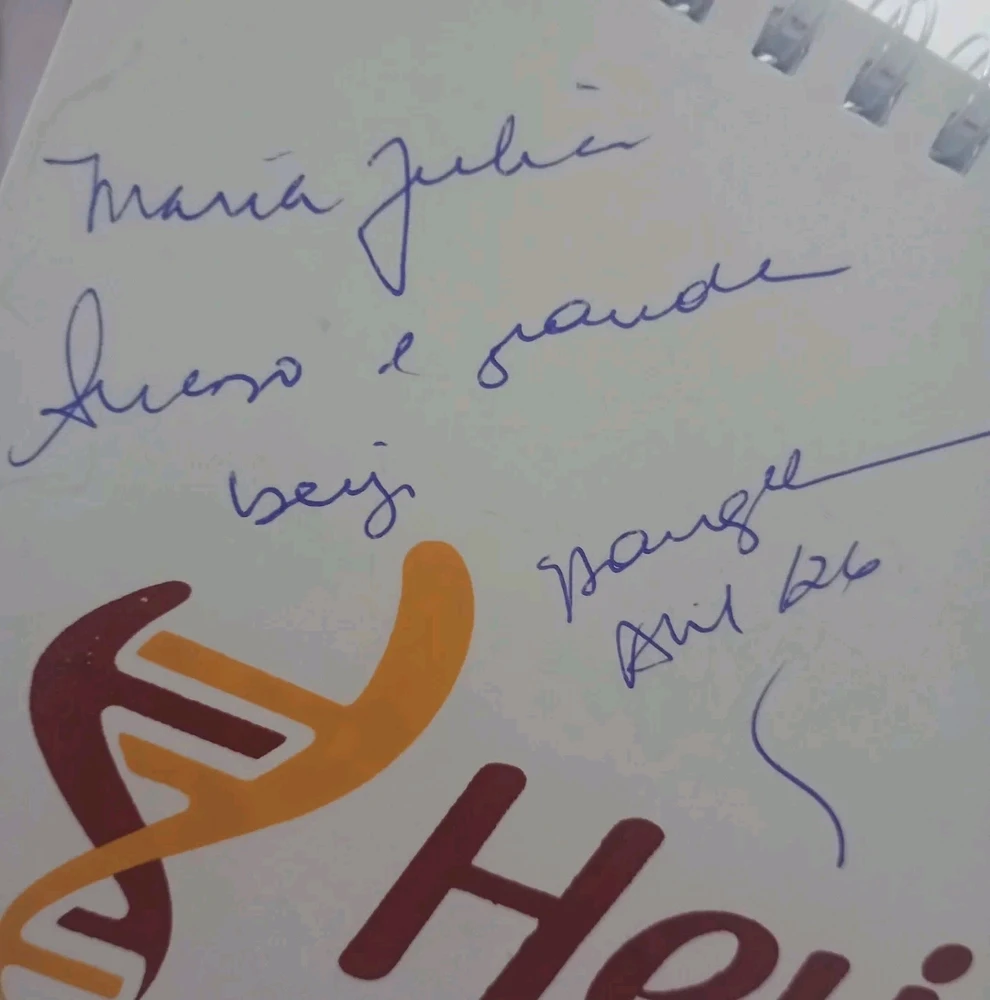 Maria Julia
Sucesso e grande
beijo
Abril /26
Heri